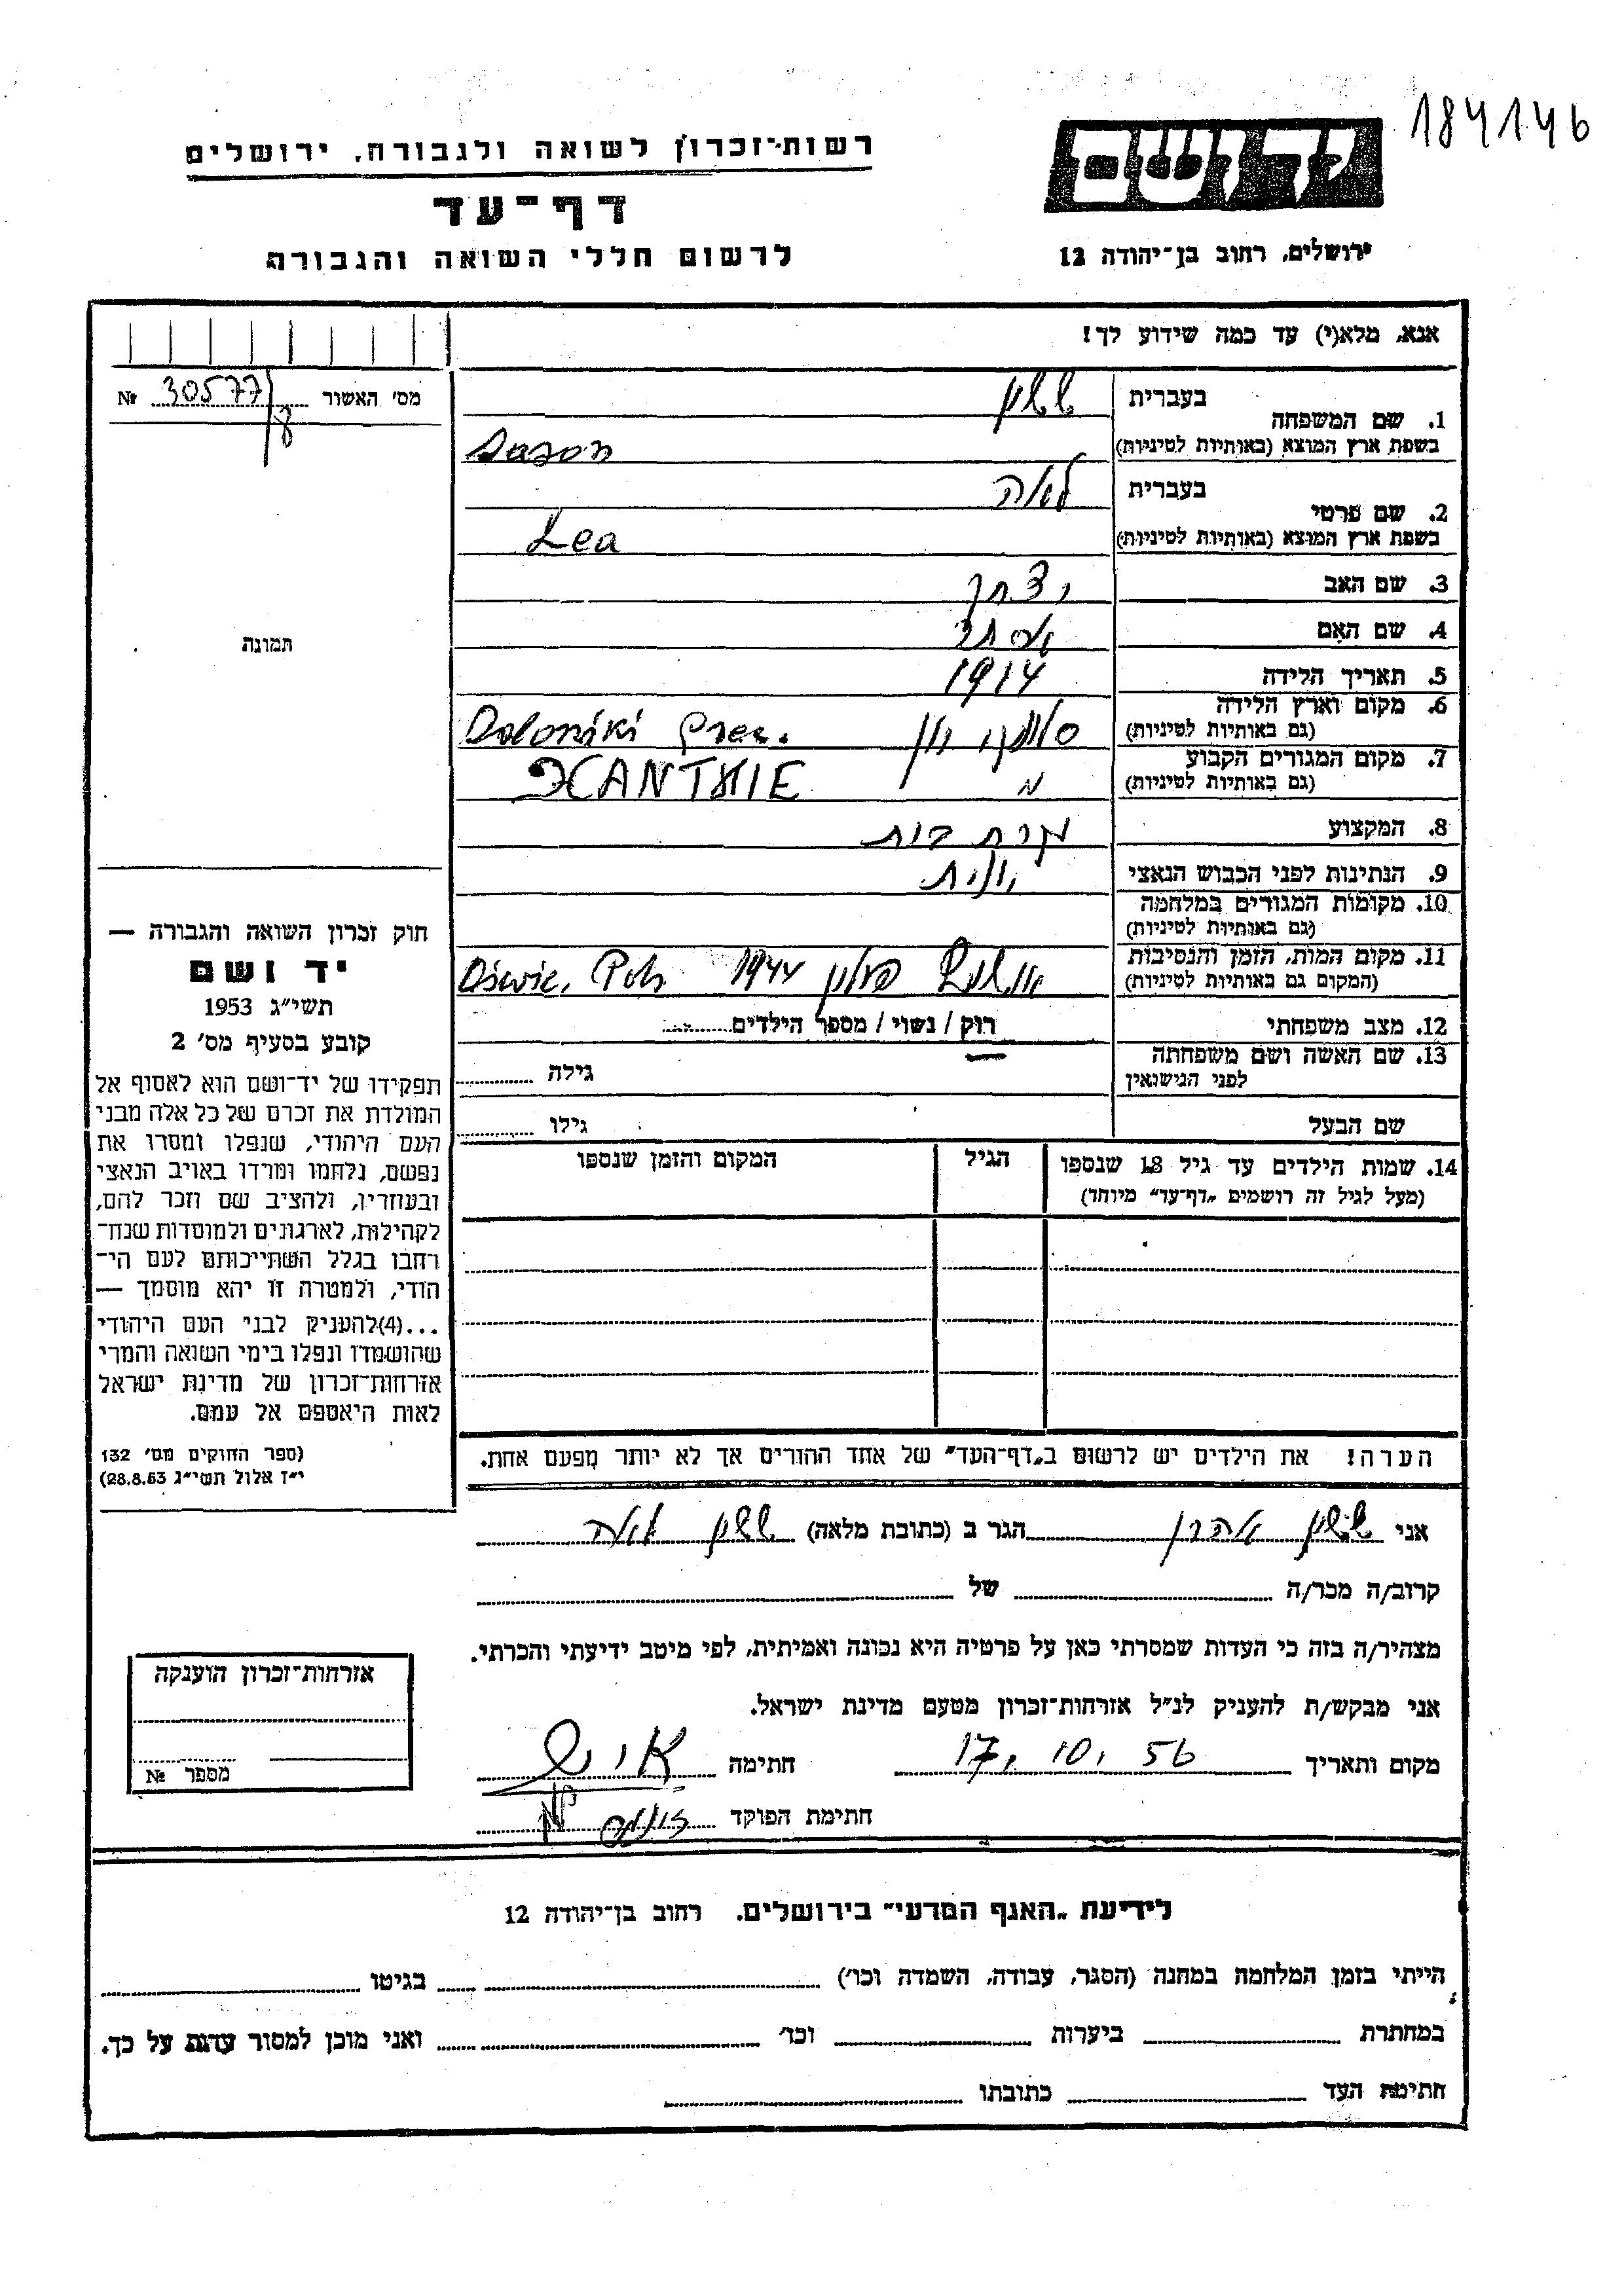 184146
יד ושם
ירושלים, רחוב בן־יהודה 12
רשות־זכרון לשואה ולגבורה, ירושלים
דף־עד
לרשום חללי השואה והגבורה
אנא, מלא(י) עד כמה שידוע לך!
מס' האשור № 30577/8
1. שם המשפחה בעברית ששון
בשפת ארץ המוצא (באותיות לטיניות) Sason
2. שם פרטי בעברית לאה
בשפת ארץ המוצא (באותיות לטיניות) Lea
3. שם האב יצחק
4. שם האם אסתר
5. תאריך הלידה 1914
6. מקום וארץ הלידה (גם באותיות לטיניות) סלוניקי יוון Saloniki Grec.
7. מקום המגורים הקבוע (גם באותיות לטיניות) XANTHIE
8. המקצוע עקרת בית
9. הנתינות לפני הכבוש הנאצי יוונית
10. מקומות המגורים במלחמה (גם באותיות לטיניות)
11. מקום המות, הזמן והנסיבות (המקום גם באותיות לטיניות) פולין 1944 Oświe. Pols
12. מצב משפחתי רוק / נשוי / מספר הילדים
13. שם האשה ושם משפחתה לפני הנישואין גילה
שם הבעל גילו
14. שמות הילדים עד גיל 18 שנספו הגיל המקום והזמן שנספו
(מעל לגיל זה רושמים „דף־עד" מיוחד)
הערה! את הילדים יש לרשום ב„דף־העד" של אחד ההורים אך לא יותר מפעם אחת.
תמונה
חוק זכרון השואה והגבורה —
יד ושם
תשי"ג 1953
קובע בסעיף מס' 2
תפקידו של יד־ושם הוא לאסוף אל
המולדת את זכרם של כל אלה מבני
העם היהודי, שנפלו ומסרו את
נפשם, נלחמו ומרדו באויב הנאצי
ובעוזריו, ולהציב שם וזכר להם,
לקהילות, לארגונים ולמוסדות שנח־
רבו בגלל השתייכותם לעם הי־
הודי, ולמטרה זו יהא מוסמך —
...(4)להעניק לבני העם היהודי
שהושמדו ונפלו בימי השואה והמרי
אזרחות־זכרון של מדינת ישראל
לאות היאספם אל עמם.
(ספר החוקים מס' 132
י"ז אלול תשי"ג 28.8.53)
אני ששון אהרן הגר ב (כתובת מלאה) ששון
קרוב/ה מכר/ה של
מצהיר/ה בזה כי העדות שמסרתי כאן על פרטיה היא נכונה ואמיתית, לפי מיטב ידיעתי והכרתי.
אני מבקש/ת להעניק לנ"ל אזרחות־זכרון מטעם מדינת ישראל.
מקום ותאריך 17, 10, 56 חתימה
חתימת הפוקד
אזרחות־זכרון הוענקה
מספר №
לידיעת „האגף המדעי" בירושלים, רחוב בן־יהודה 12
הייתי בזמן המלחמה במחנה (הסגר, עבודה, השמדה וכו') בגיטו
במחתרת ביערות וכו' ואני מוכן למסור עדות על כך.
חתימת העד כתובתו